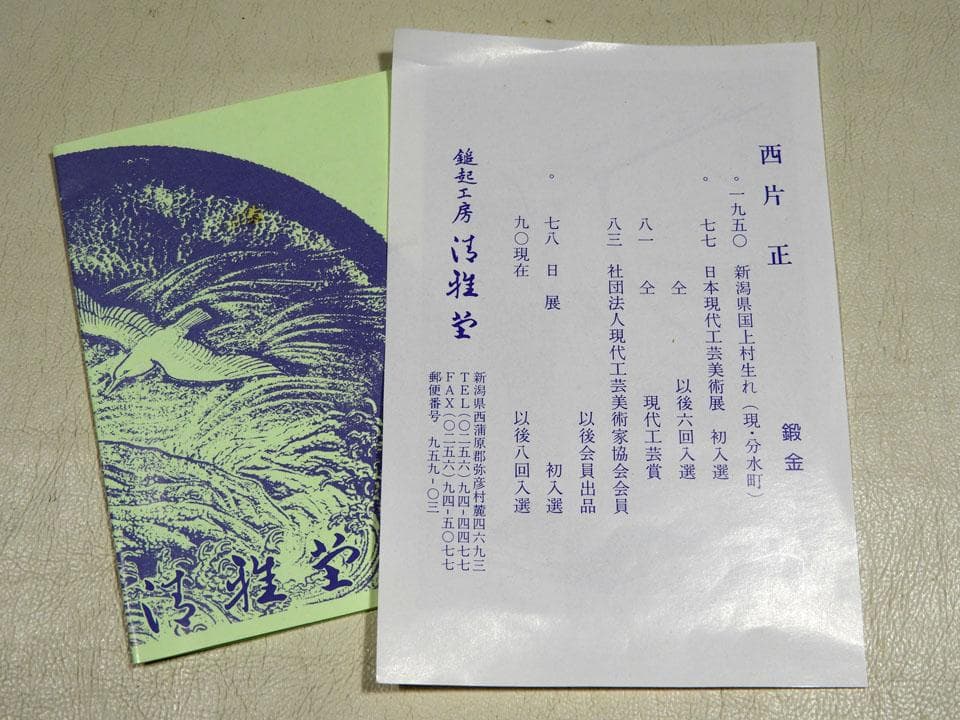 西片 正
鍛金
。一九五〇 新潟県国上村生れ（現・分水町）
。七七 日本現代工芸美術展 初入選
仝 以後六回入選
八一 仝 現代工芸賞
八三 社団法人現代工芸美術家協会会員
以後会員出品
。七八 日展 初入選
九〇現在 以後八回入選
鎚起工房 清雅堂
新潟県西蒲原郡弥彦村麓四六九三
TEL（〇二五六）九四-四四七七
FAX（〇二五六）九四-五〇七七
郵便番号 九五九-〇三
清雅堂